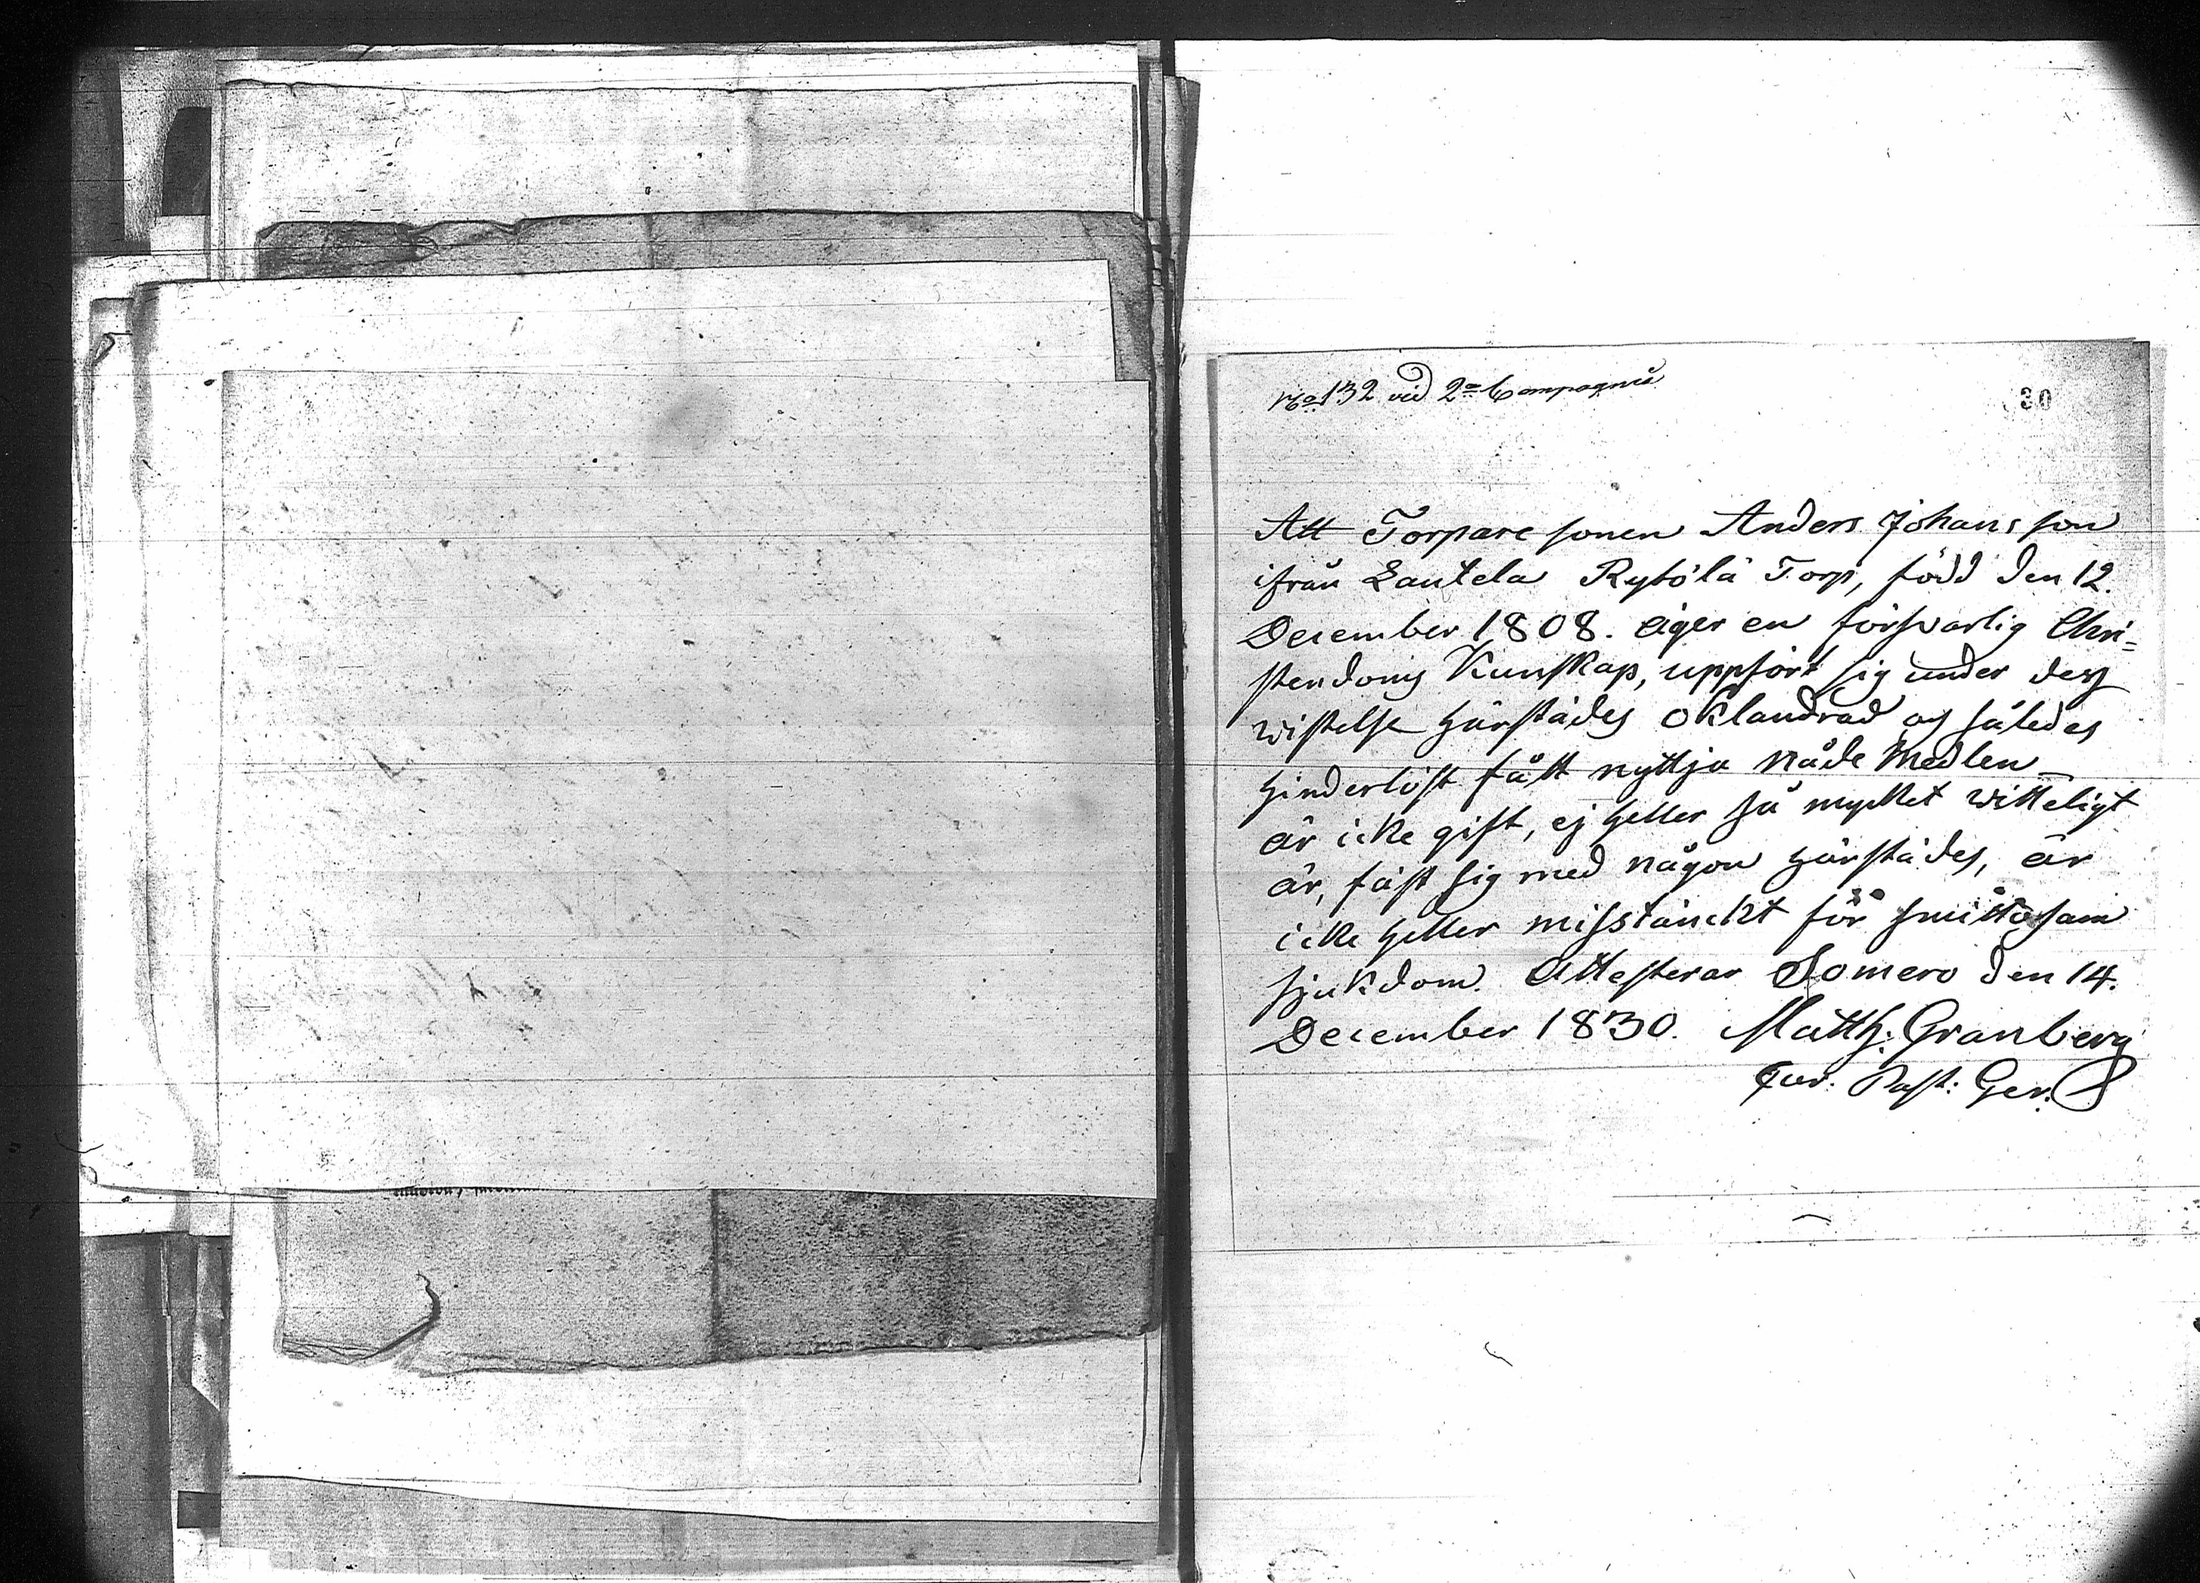 No 132 vid 2a Compagnie
30
Att Torpare sonen Anders Johans son
ifrån Lautela Rytölä Torp, född den 12.
December 1808. äger en försvarlig Chri=
stendoms Kunskap, uppfört sig under dess
wistelse härstädes oklandrad och således
hinderlöst fått nyttja Nåde Medlen
är icke gift, ej heller så mycket witteligt
är, fäst sig med någon härstädes, är
icke heller misstänckt för smittosam
sjukdom. Attesterar Somero den 14.
December 1830. Matth: Granberg
Past: